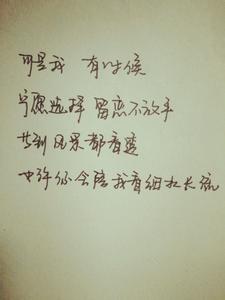 可是我 有时候
宁愿选择 留恋不放手
等到风景都看透
也许你会陪我看细水长流